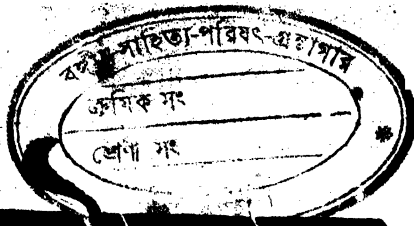 বঙ্গীয় সাহিত্য-পরিষৎ-গ্রন্থাগার
ক্রমিক সং
শ্রেণী সং